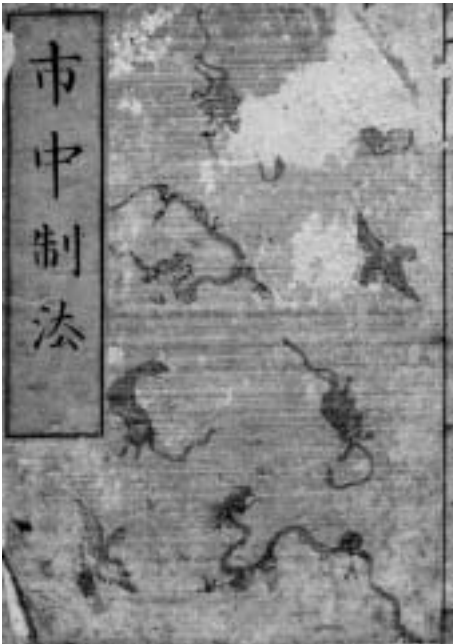 市中制法